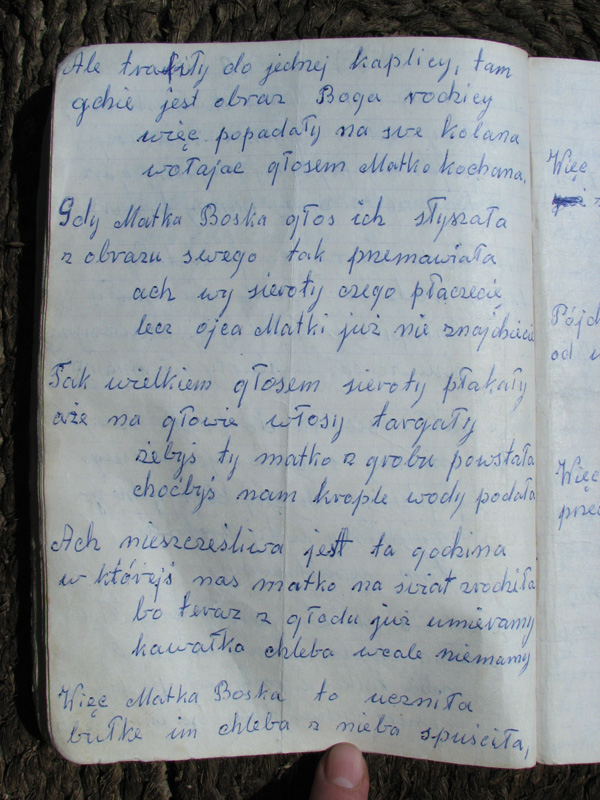 Ale trafiły do jednej kaplicy, tam
gdzie jest obraz Boga rodzicy
więc popadały na swe kolana
wołajac głosem Matko kochana,
Gdy Matka Boska głos ich słyszała
z obrazu swego tak przemawiała
ach wy sieroty czego płaczecie
lecz ojca Matki już nie znajdziecie
Tak wielkiem głosem sieroty płakały
aże na głowie włosy targały
żebyś ty matko z grobu powstała
choćbyś nam krople wody podała
Ach nieszcześliwa jest ta godzina
w którejś nas matko na świat zrodziła
bo teraz z głodu już umieramy
kawałka chleba wcale niemamy
Więc Matka Boska to uczniła
bułke im chleba z nieba spuściła,
Więc
Pójdź
od
Więc